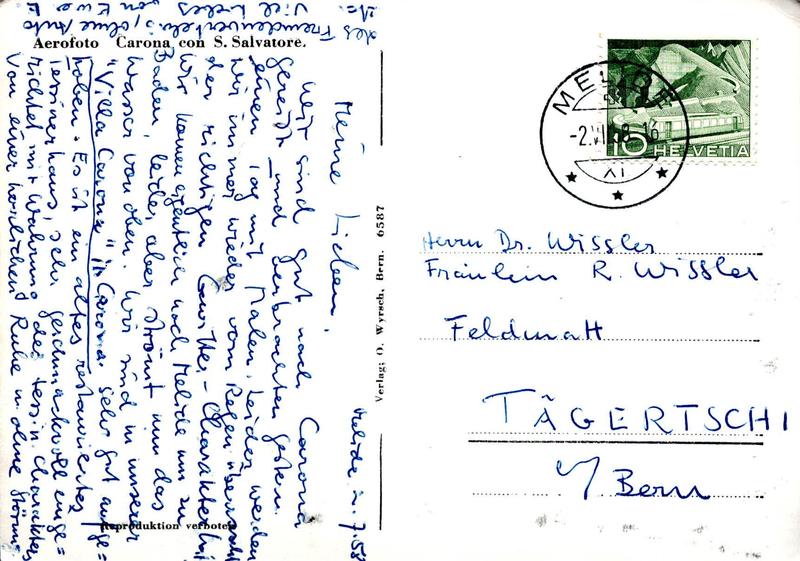 Aerofoto Carona con S. Salvatore.
Melide 2. 7. 58
Meine Lieben,
Wir sind gut nach Carona
gereist und verbrachten gestern
einen Tag mit Malen, leider werden
wir immer wieder vom Regen überrascht
der richtigen Gewitter-Charakter hat
Wir kamen eigentlich nach Melide um zu
Baden, leider aber strömt nun das
Wasser von oben. Wir sind in unserer
"Villa Carona" in Carona sehr gut aufge=
hoben. Es ist ein altes restauriertes
Tessinerhaus, sehr geschmackvoll einge=
richtet mit Wahrung des tessin. Charakters
Von einer herrlichen Ruhe u. ohne Störung
des Fremdenverkehrs, ohne Auto
etc. Viel Liebes
von Eure
Reproduktion verboten
Verlag: O. Wyrsch, Bern. 6587
MELIDE
-2.VII.58-16
XI
10 HELVETIA
Herrn Dr. Wissler
Fräulein R. Wissler
Feldmatt
TÄGERTSCHI
b/Bern